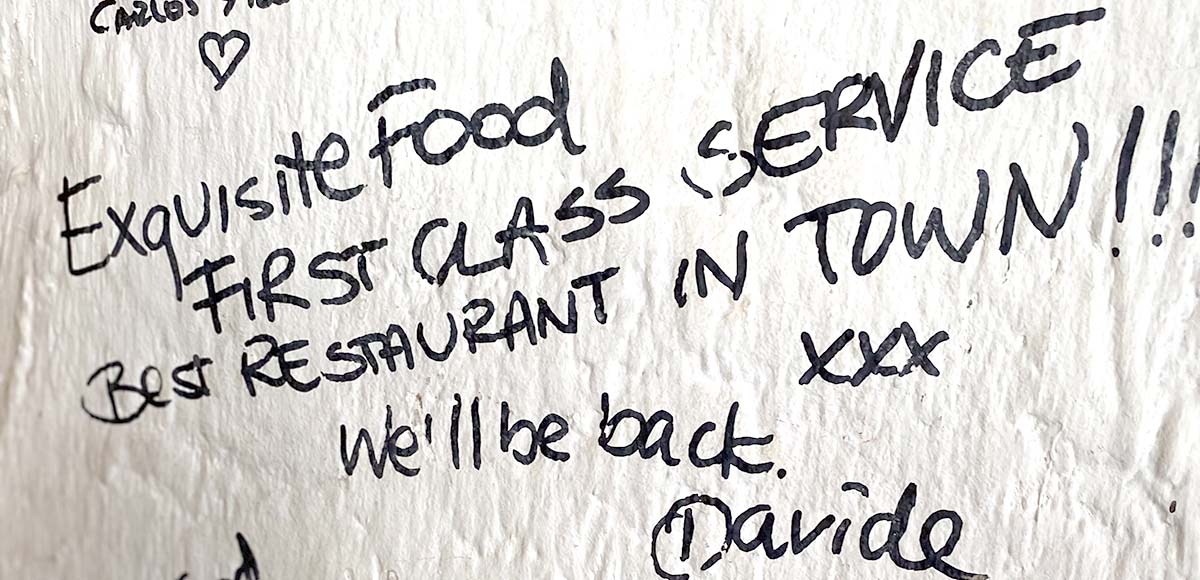 CARLOS
Exquisite Food
FIRST CLASS SERVICE
BEST RESTAURANT IN TOWN!!!
xxx
We'll be back.
Davide